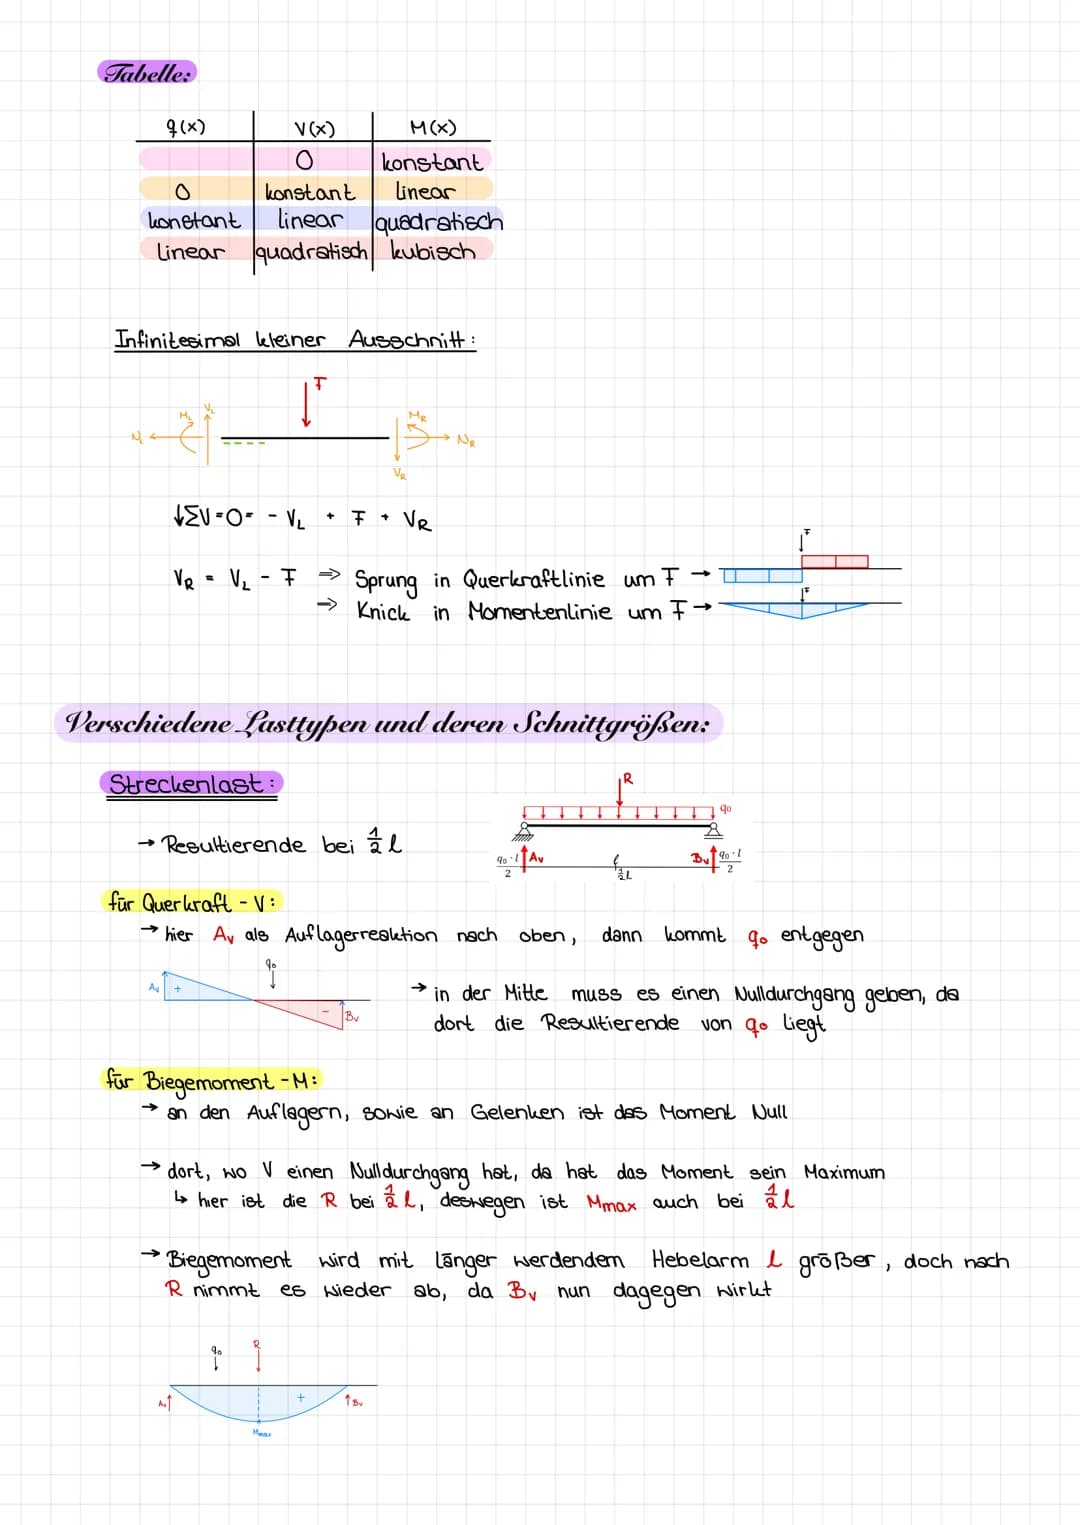 Tabelle:
q(x) V(x) M(x)
0 konstant
0 konstant linear
konstant linear quadratisch
linear quadratisch kubisch
Infinitesimal kleiner Ausschnitt:
F
M_L V_L M_R
N_L N_R
V_R
↓ΣV=0= - V_L + F + V_R
V_R = V_L - F ⇒ Sprung in Querkraftlinie um F →
⇒ Knick in Momentenlinie um F →
F
F
Verschiedene Lasttypen und deren Schnittgrößen:
Streckenlast:
R
q₀
→ Resultierende bei ½ l
q₀·l/2 A_v B_v q₀·l/2
½L
für Querkraft - V:
→ hier A_v als Auflagerreaktion nach oben, dann kommt q₀ entgegen
q₀
A_v + - B_v
→ in der Mitte muss es einen Nulldurchgang geben, da
dort die Resultierende von q₀ liegt
für Biegemoment - M:
→ an den Auflagern, sowie an Gelenken ist das Moment Null
→ dort, wo V einen Nulldurchgang hat, da hat das Moment sein Maximum
↳ hier ist die R bei ½ l, deswegen ist Mmax auch bei ½ l
→ Biegemoment wird mit länger werdendem Hebelarm l größer, doch nach
R nimmt es wieder ab, da B_v nun dagegen wirkt
q₀ R
A_v + B_v
Mmax